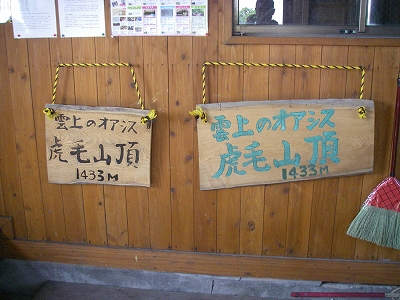 雲上のオアシス
虎毛山頂
1433M
雲上のオアシス
虎毛山頂
1433M